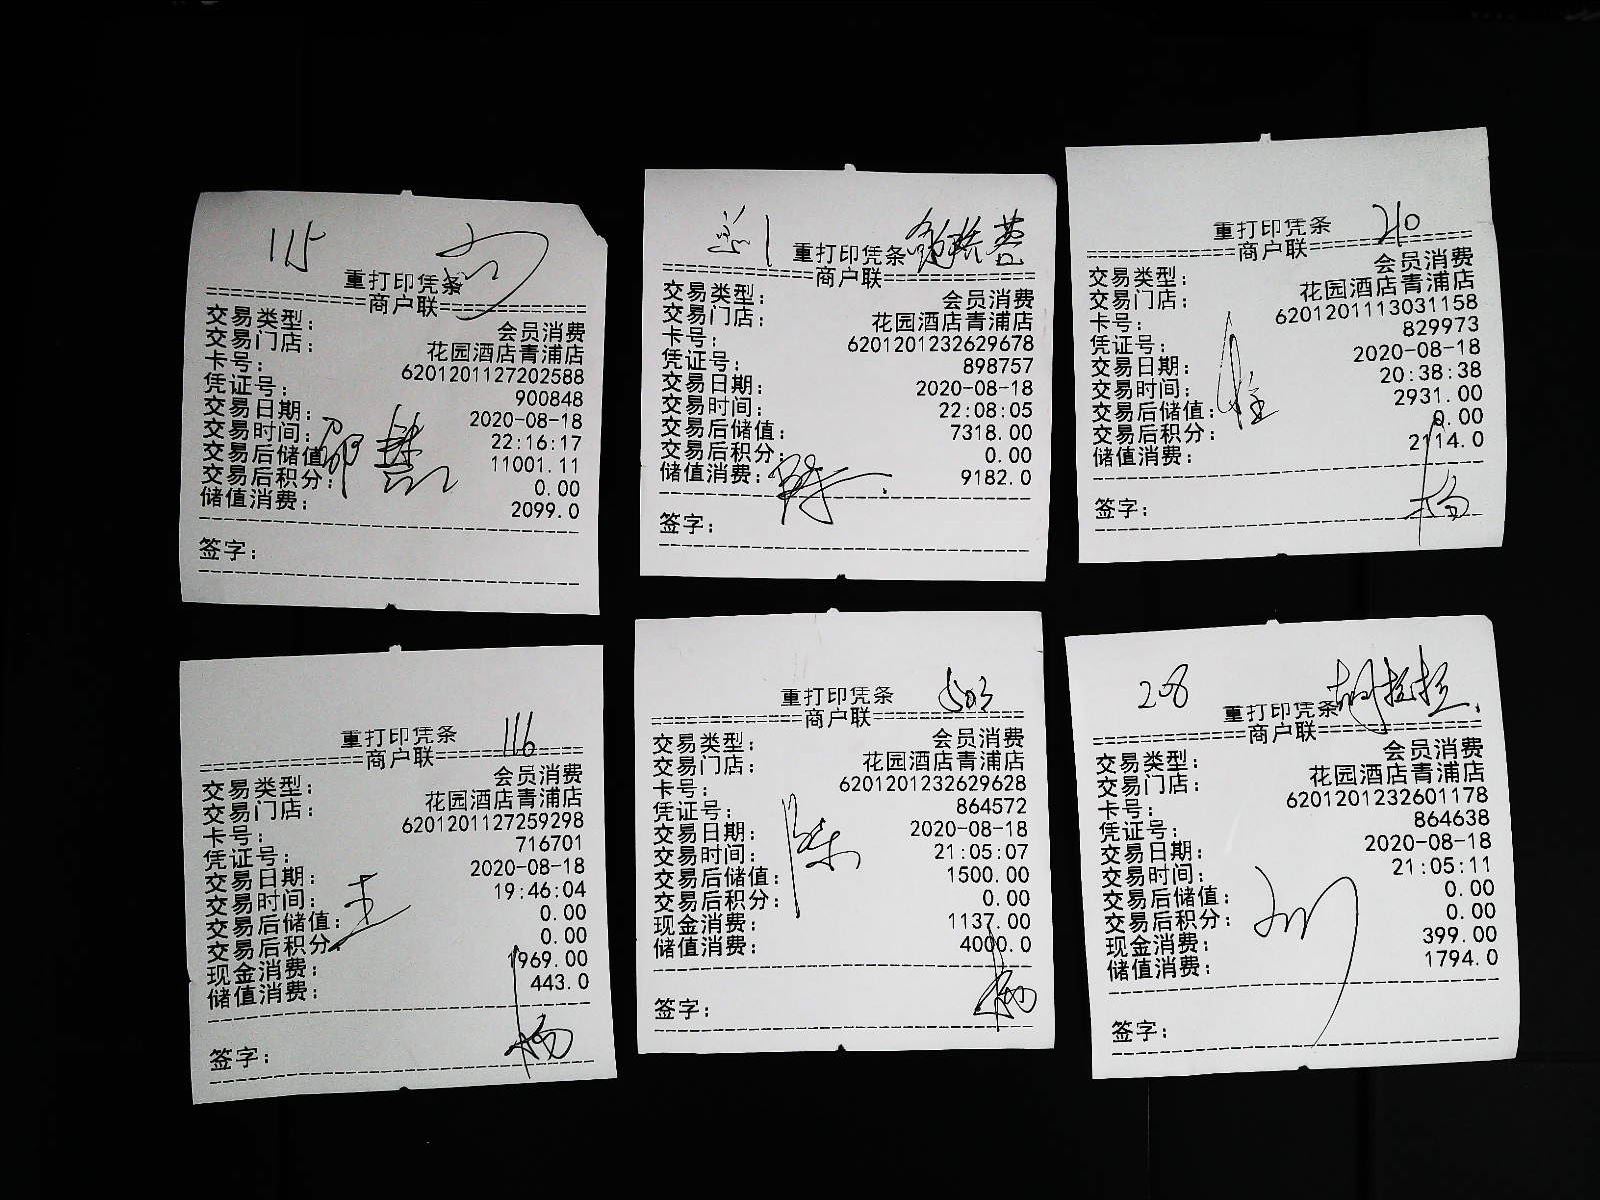 115
重打印凭条
==============商户联==============
交易类型： 会员消费
交易门店： 花园酒店青浦店
卡号： 6201201127202588
凭证号： 900848
交易日期： 2020-08-18
交易时间： 22:16:17
交易后储值 11001.11
交易后积分： 0.00
储值消费： 2099.0
签字：
重打印凭条
==============商户联==============
交易类型： 会员消费
交易门店： 花园酒店青浦店
卡号： 6201201232629678
凭证号： 898757
交易日期： 2020-08-18
交易时间： 22:08:05
交易后储值： 7318.00
交易后积分： 0.00
储值消费： 9182.0
签字：
重打印凭条 210
==============商户联==============
交易类型： 会员消费
交易门店： 花园酒店青浦店
卡号： 6201201113031158
凭证号： 829973
交易日期： 2020-08-18
交易时间： 20:38:38
交易后储值： 2931.00
交易后积分： 0.00
储值消费： 2114.0
签字： 杨
重打印凭条 116
==============商户联==============
交易类型： 会员消费
交易门店： 花园酒店青浦店
卡号： 6201201127259298
凭证号： 716701
交易日期： 2020-08-18
交易时间： 19:46:04
王
交易后储值： 0.00
交易后积分： 0.00
现金消费： 1969.00
储值消费： 443.0
签字： 杨
重打印凭条 503
==============商户联==============
交易类型： 会员消费
交易门店： 花园酒店青浦店
卡号： 6201201232629628
凭证号： 864572
交易日期： 2020-08-18
交易时间： 21:05:07
陈
交易后储值： 1500.00
交易后积分： 0.00
现金消费： 1137.00
储值消费： 4000.0
签字： 杨
208 胡拉拉
重打印凭条
==============商户联==============
交易类型： 会员消费
交易门店： 花园酒店青浦店
卡号： 6201201232601178
凭证号： 864638
交易日期： 2020-08-18
交易时间： 21:05:11
交易后储值： 0.00
交易后积分： 0.00
现金消费： 399.00
储值消费： 1794.0
签字：